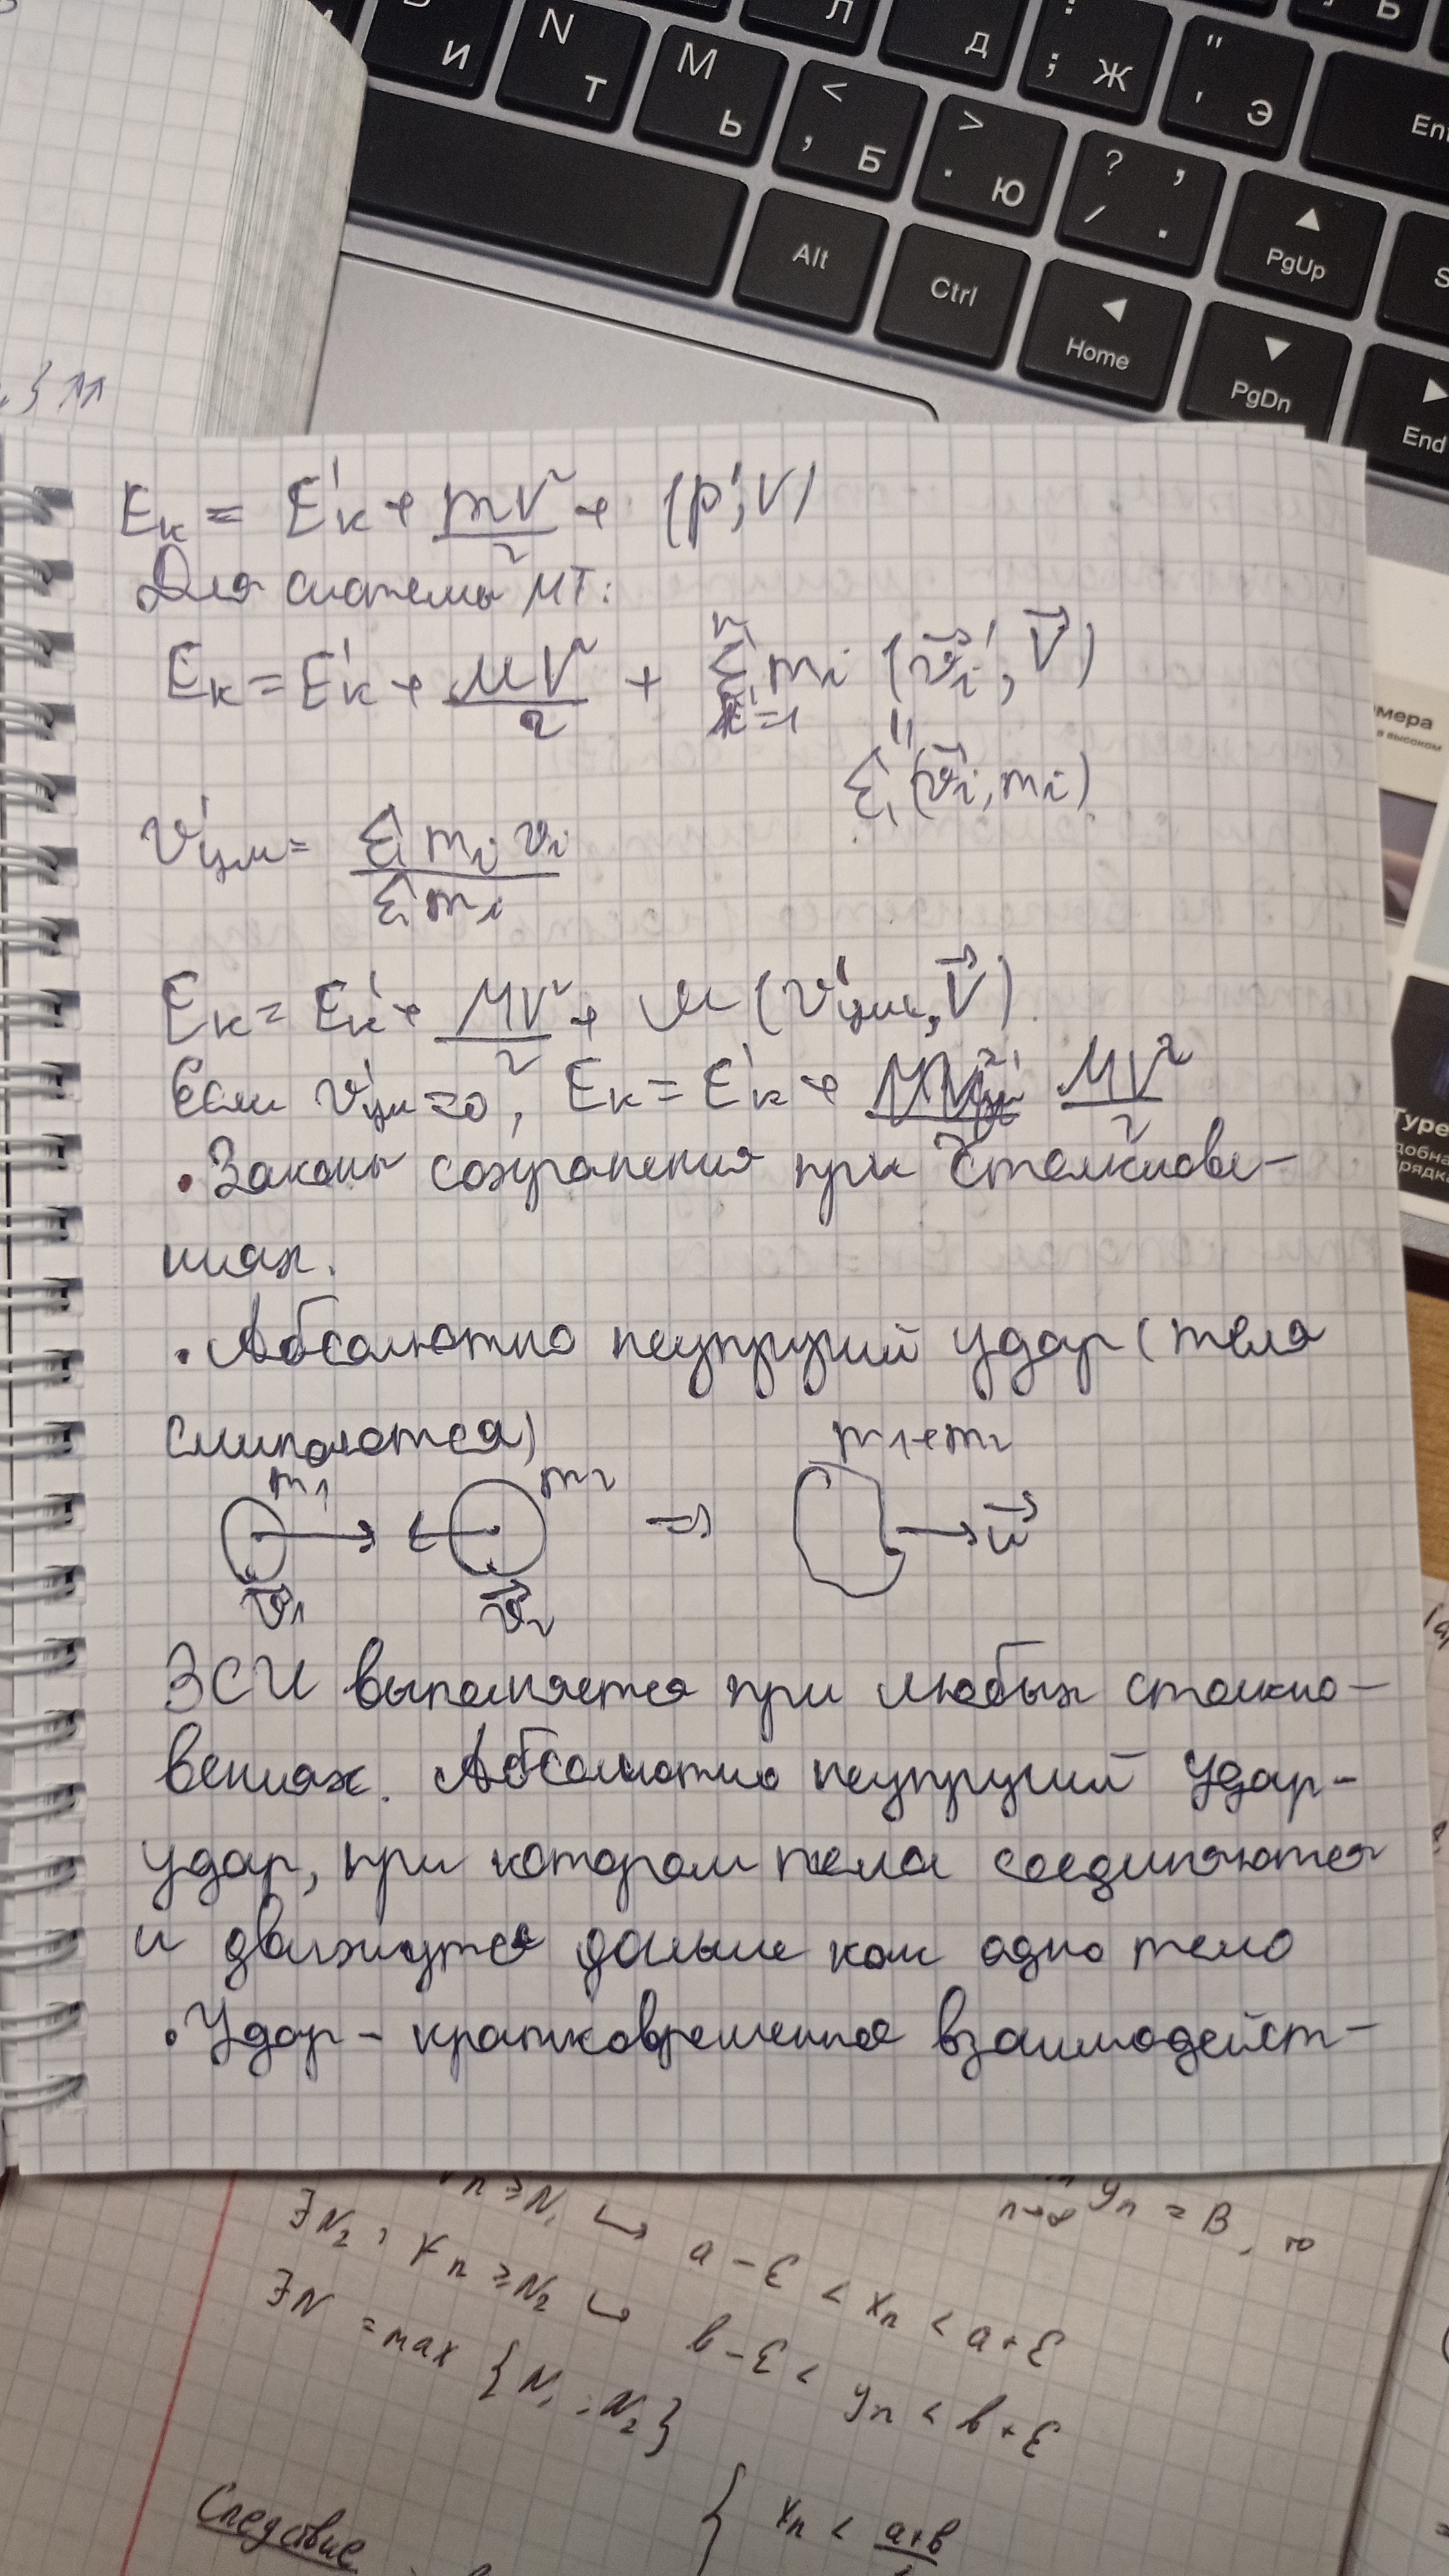 Л
Д
; Ж
" ' Э
N Т
M Ь
< , Б
> . Ю
? / , .
И
Ent
Alt
Ctrl
Home
PgUp
PgDn
End
} ⇈
Eк = E'к + mV²/2 + (p', V)
Для системы МТ:
Eк = E'к + MV²/2 + n Σ i=1 mi (v⃗i', V⃗)
||
Σ (v⃗i, mi)
v'цм = Σ mi vi / Σ mi
Eк = E'к + MV²/2 + M (v'цм, V⃗)
Если v'цм = 0, Eк = E'к + MV²/2
• Законы сохранения при столкнове-
ниях.
• Абсолютно неупругий удар (тела
слипаются)
m1 m2 m1+m2
⇒ u⃗
v⃗1 v⃗2
ЗСИ выполняется при любых столкно-
вениях. Абсолютно неупругий удар -
удар, при котором тела соединяются
и движутся дальше как одно тело
• Удар - кратковременное взаимодейст-
мера
в высоком
Type
добна
рядка
n ≥ N1 ↪ a - ε < xn < a + ε
n→∞ yn = B, то
∃N2, ∀n ≥ N2 ↪ b - ε < yn < b + ε
∃N = max {N1; N2}
Следствие
{ xn < a+b